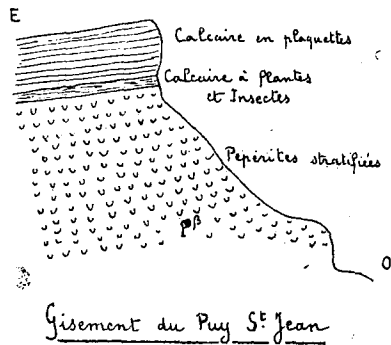 E
Calcaire en plaquettes
Calcaire à plantes
et Insectes
Pépérites stratifiées
pβ
O
Gisement du Puy St. Jean